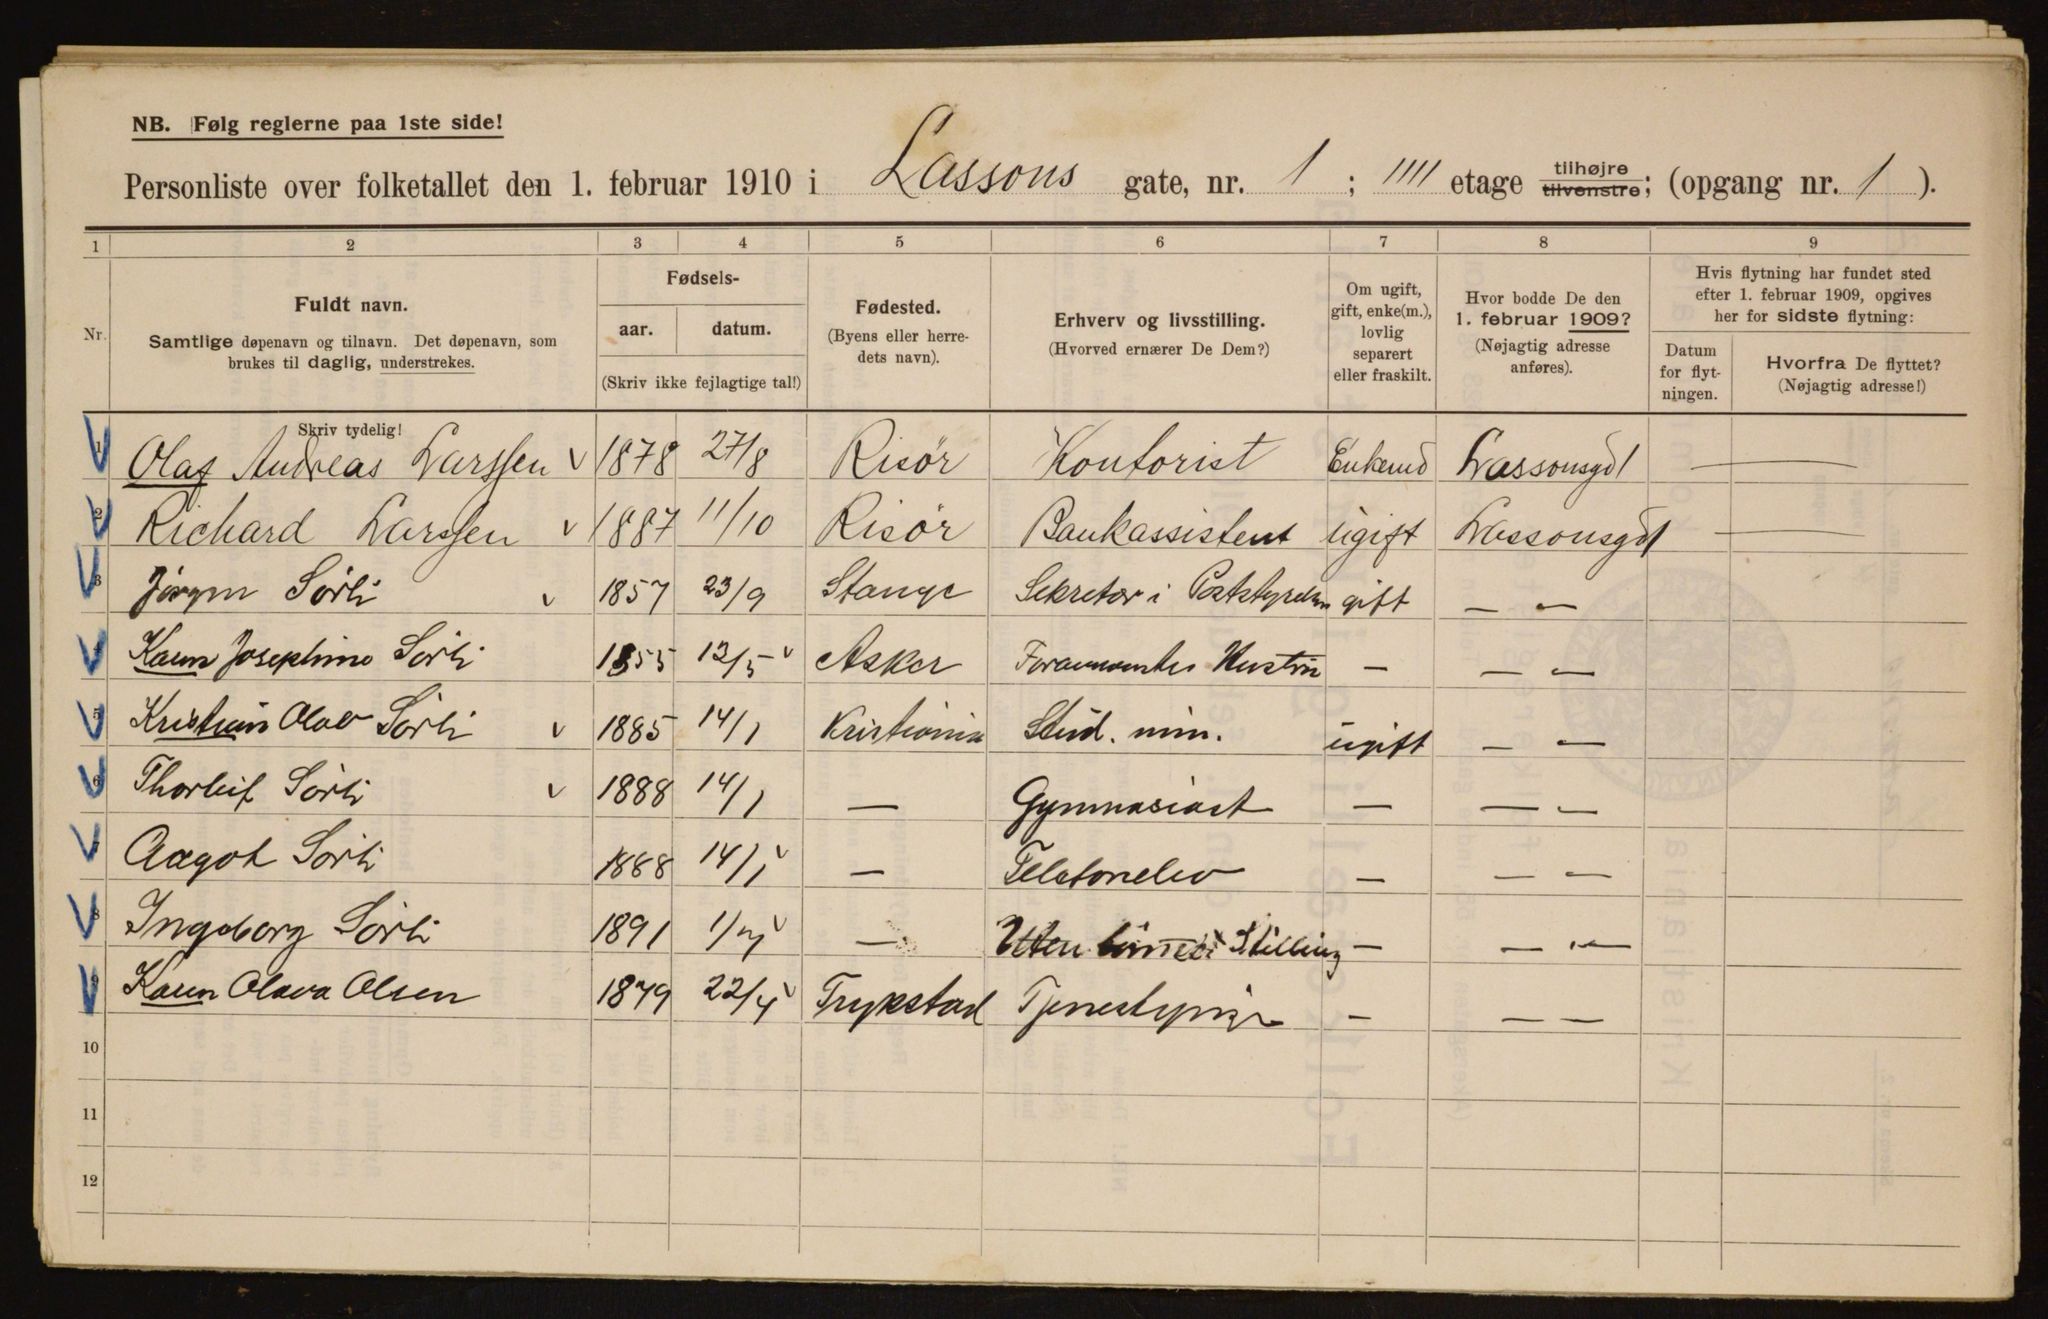 NB. Følg reglerne paa 1ste side!
Personliste over folketallet den 1. februar 1910 i Lassons gate, nr. 1 ; IIII etage tilhøjre tilvenstre; (opgang nr. 1 ).
1 2 3 4 5 6 7 8 9
Nr. Fuldt navn. Samtlige døpenavn og tilnavn. Det døpenavn, som brukes til daglig, understrekes.
Fødsels-
aar. datum.
(Skriv ikke fejlagtige tal!)
Fødested.
(Byens eller herre-
dets navn).
Erhverv og livsstilling.
(Hvorved ernærer De Dem?)
Om ugift,
gift, enke(m.),
lovlig
separert
eller fraskilt.
Hvor bodde De den
1. februar 1909?
(Nøjagtig adresse
anføres).
Hvis flytning har fundet sted
efter 1. februar 1909, opgives
her for sidste flytning:
Datum
for flyt-
ningen.
Hvorfra De flyttet?
(Nøjagtig adresse!)
Skriv tydelig!
1 Olaf Andreas Larssen v 1878 27/8 Risör Kontorist Enkemd Lassonsgd 1 —
2 Richard Larssen v 1887 11/10 Risör Bankassistent ugift Lassonsgd 1 —
3 Jörgen Sörli v 1857 23/9 Stange Sekretær i Poststyrelsen gift — —
4 Karen Josephine Sörli 1855 12/5 v Asker Forannævntes Hustru — — —
5 Kristian Olav Sörli v 1885 14/1 Kristiania Stud. min. ugift — —
6 Thorleif Sörli v 1888 14/1 — Gymnasiast — — —
7 Aagot Sörli 1888 14/1 v — Telefonelev — — —
8 Ingeborg Sörli 1891 v — Uten Stilling — — —
9 Karen Olava Olsen 1879 22/4 v Trykstad Tjenestepige — — —
10
11
12